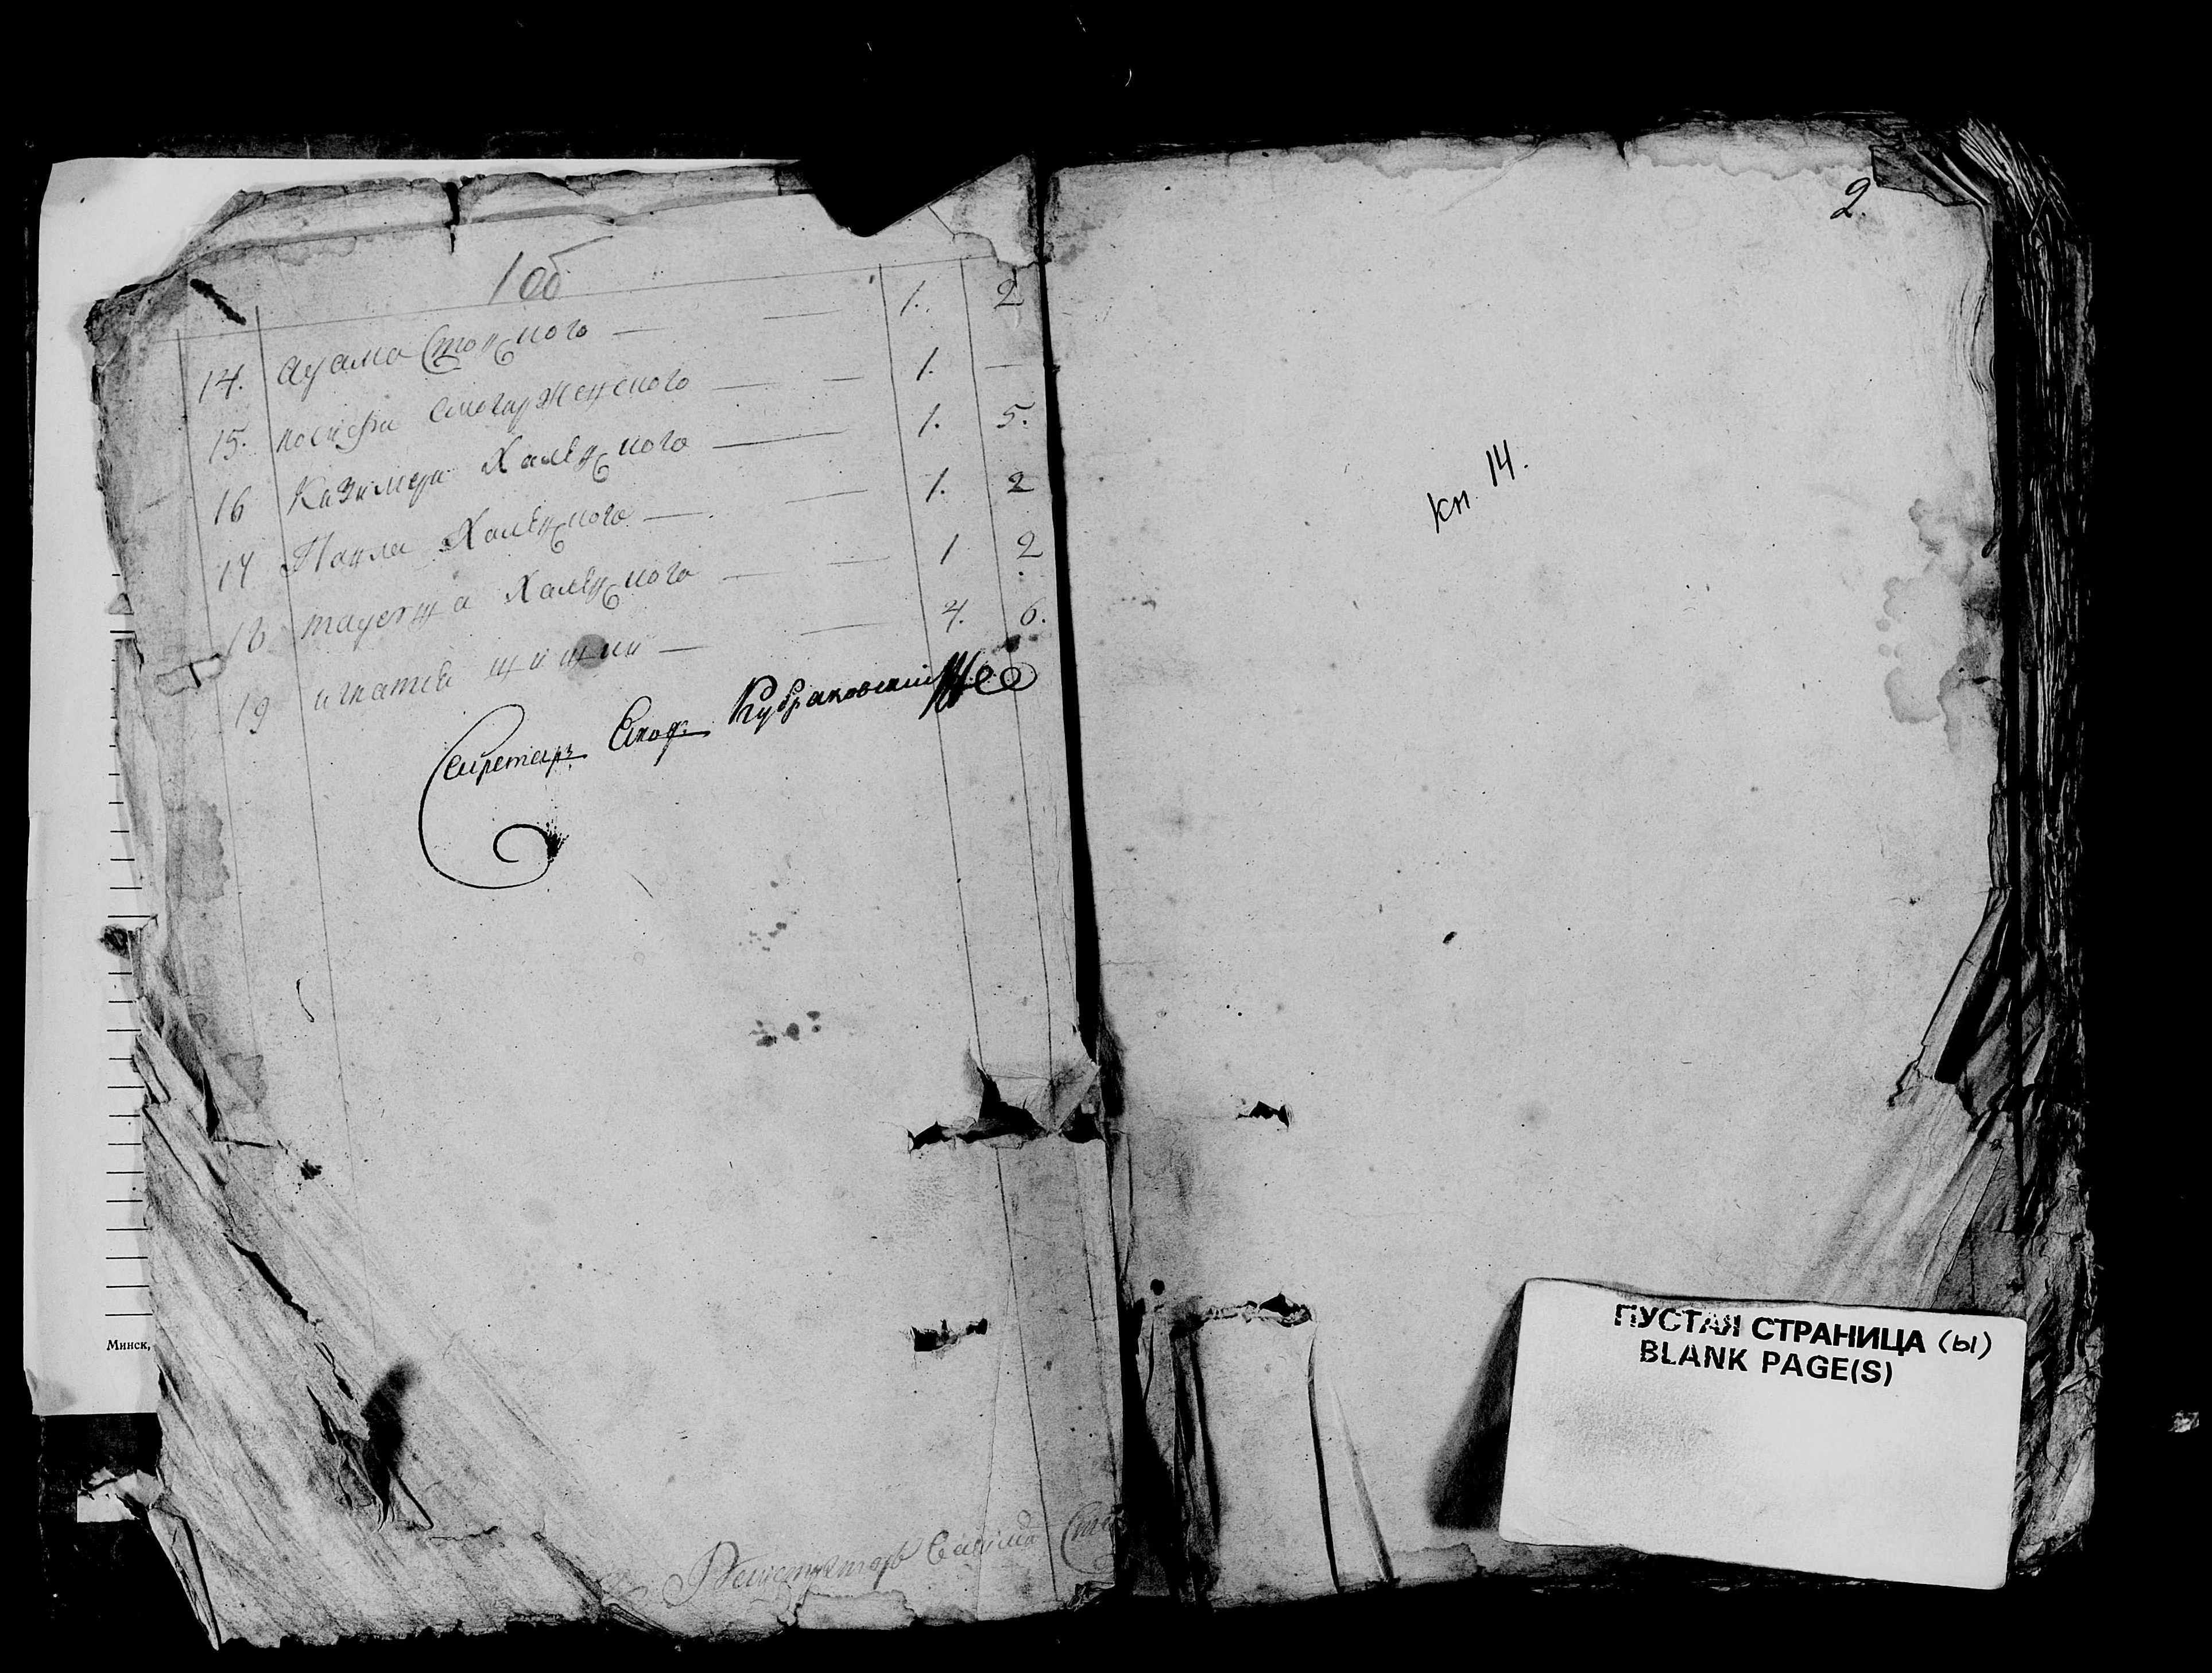 1 об
14. адама Стоцкого — — 1. 2
15. иосифа Смогарженского — — 1. —
16 Казимера Халецкого — 1. 5.
17 Павла Халецкого — — 1. 2
18 тадеуша Халецкого — — 1 2
19 игнатей — — 4. 6.
Секретарь Кубраковский
Регистраторъ
2.
кн. 14.
ПУСТАЯ СТРАНИЦА (Ы)
BLANK PAGE(S)
Минск,